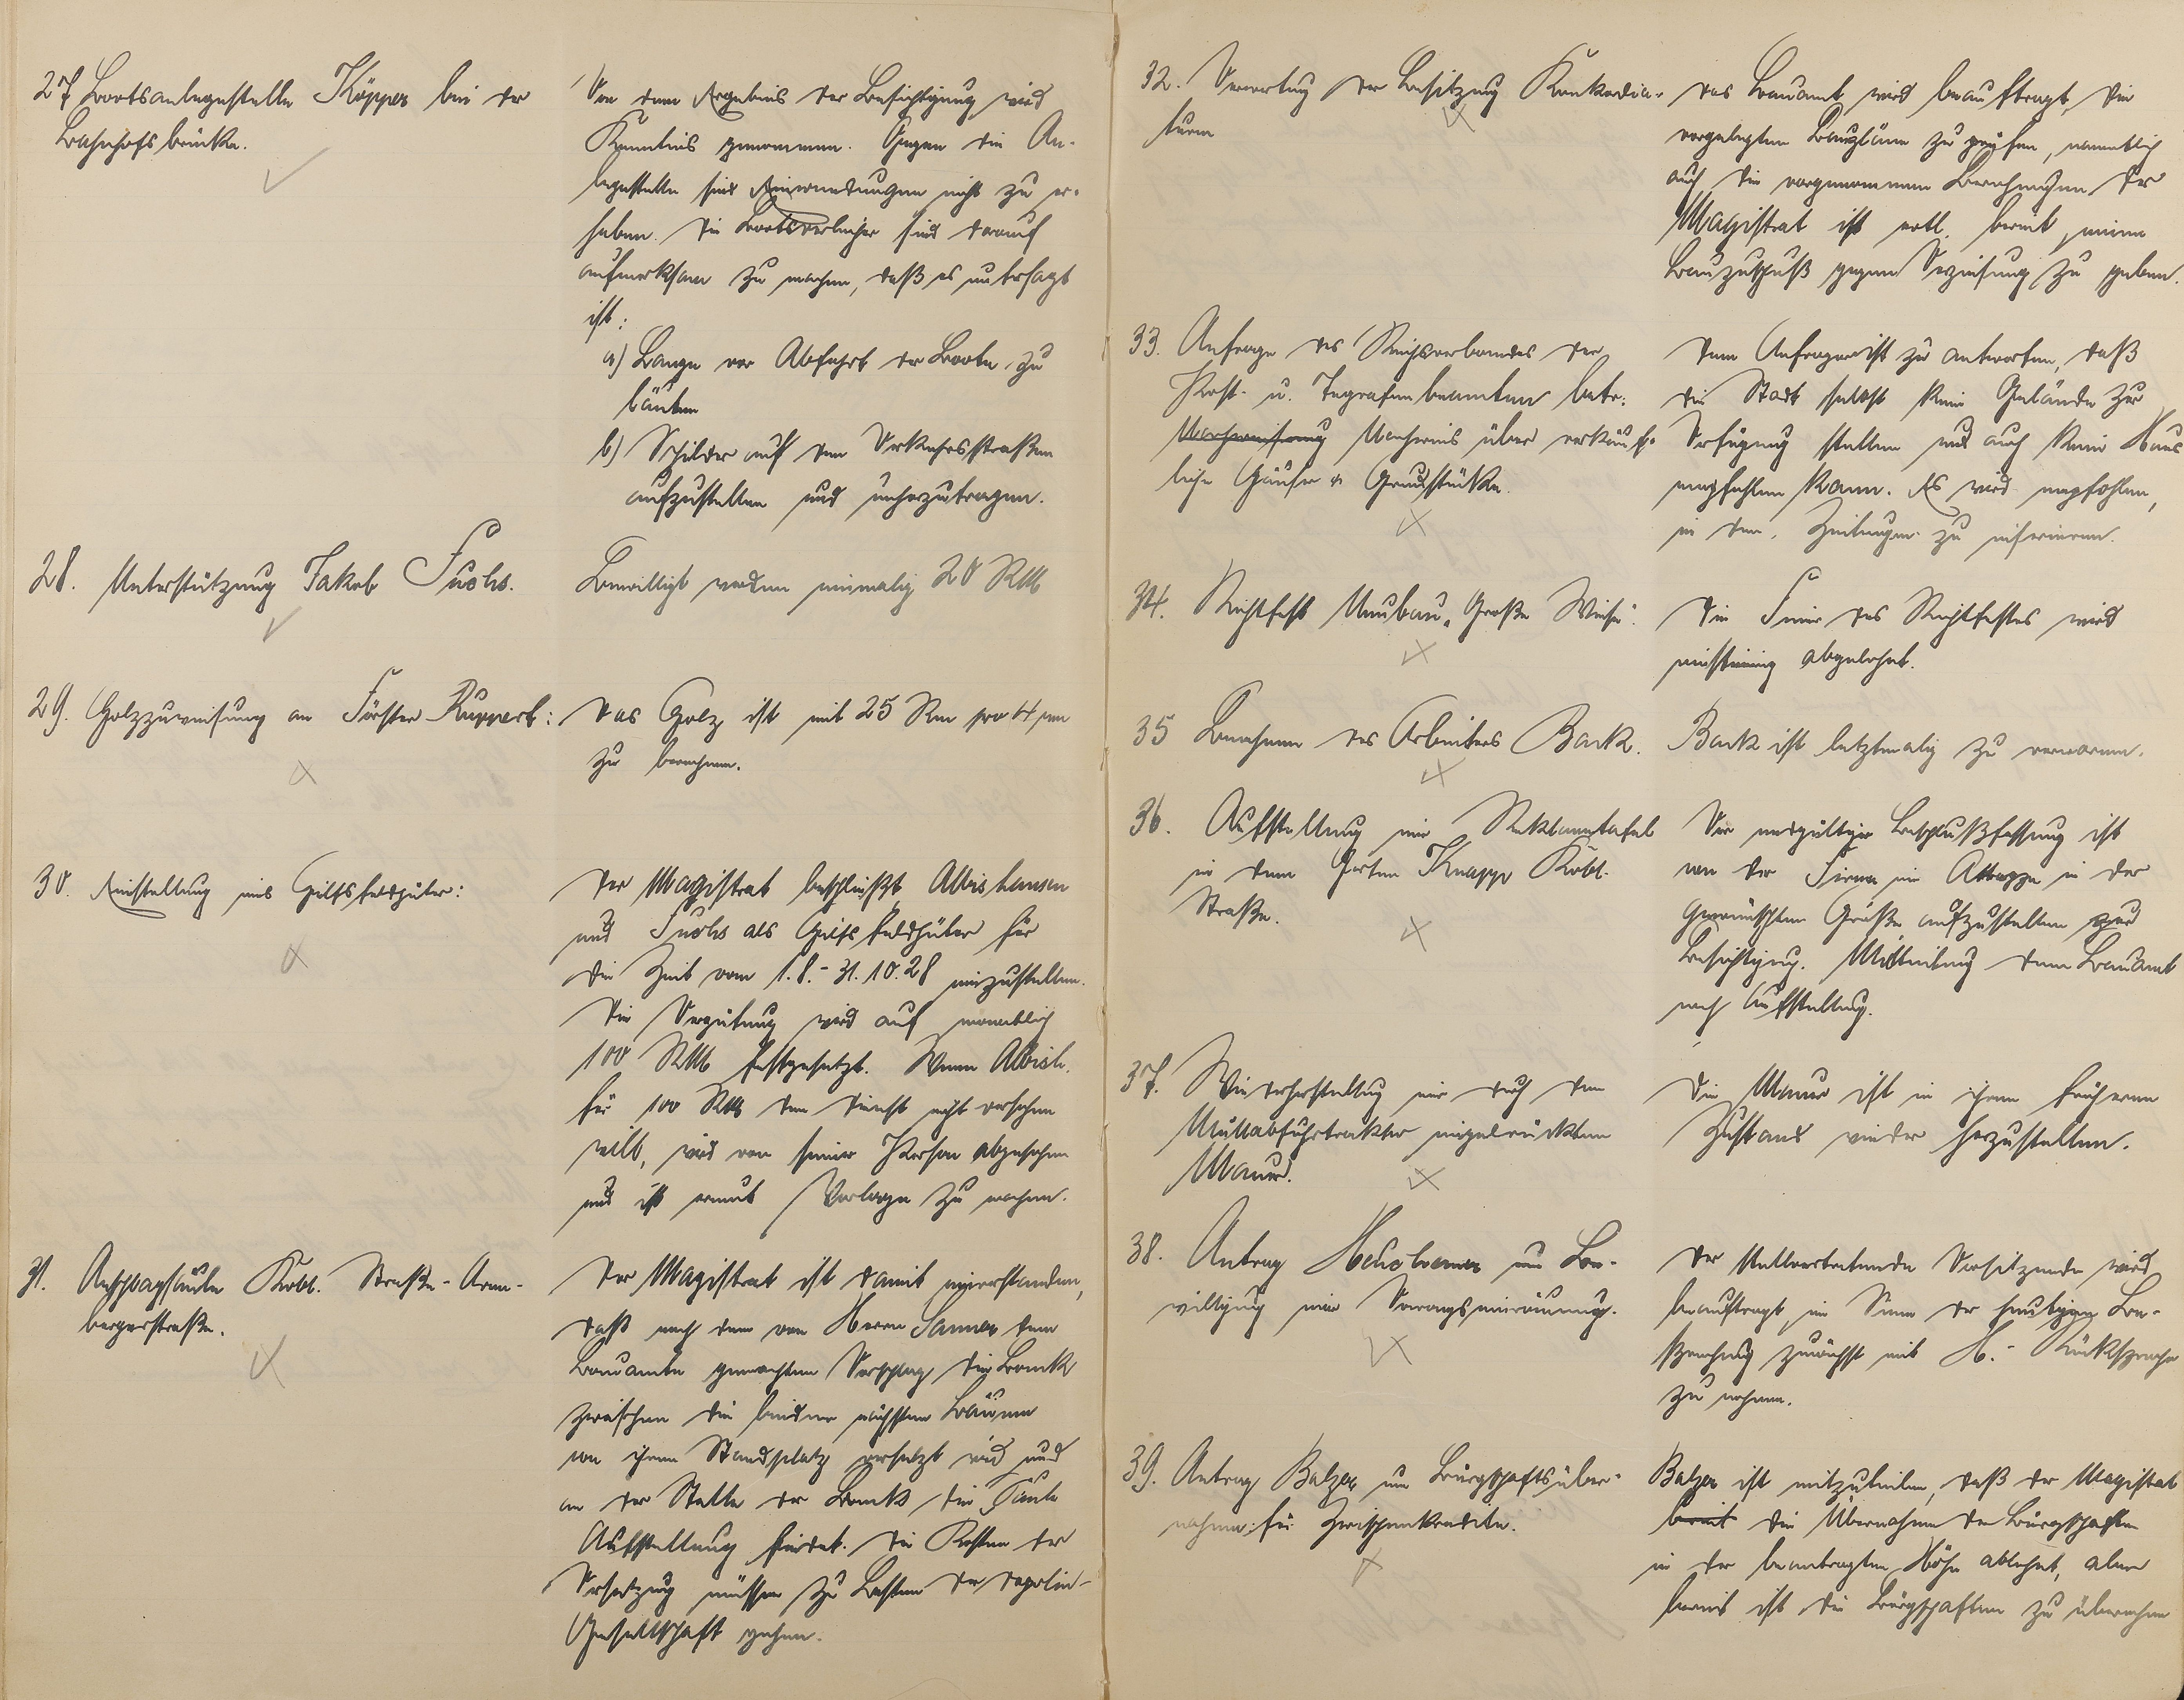 27 Bootsanlegestelle Köpper bei der
Bahnhofsbrücke.
Von dem Ergebnis der Besichtigung wird
Kenntnis genommen. Gegen die An-
legestelle sind Einwendungen nicht zu er-
heben. Die Bootsverleiher sind darauf
aufmerksam zu machen, daß es untersagt
ist:
a) Lange vor Abfahrt der Boote zu
läuten
b) Schilder auf den Verkehrsstraßen
aufzustellen und umherzutragen.
28. Unterstützung Jakob Fuchs.
Bewilligt werden einmalig 20 RM
29. Holzzuweisung an Förster Ruppert:
Das Holz ist mit 25 Rm pro 4 rm
zu berechnen.
30. Einstellung eines Hilfsfeldhüter:
Der Magistrat beschließt, Albishausen
und Fuchs als Hilfsfeldhüter für
die Zeit vom 1.8.-31.10.28 einzustellen.
Die Vergütung wird auf monatlich
100 RM festgesetzt. Wenn Albish.
für 100 RM den Dienst nicht versehen
will, wird von seiner Person abgesehen
und ist erneut Vorlage zu machen.
31. Anschlagsäule Kobl. Straße-Arm-
bergerstraße.
Der Magistrat ist damit einverstanden,
daß nach dem von Herrn Sames dem
Bauamte gemachten Vorschlag die Bank
zwischen die beiden nächsten Bäume
von ihrem Standplatz versetzt wird und
an der Stelle der Bank die Säule
Aufstellung findet. Die Kosten der
Versetzung müssen zu Lasten der
Gesellschaft gehen.
32. Verwertung der Besitzung Konkordia-
turm
Das Bauamt wird beauftragt, die
vorgelegten Baupläne zu prüfen, namentlich
auch die vorgenommenen Berechnungen. Der
Magistrat ist evtl. bereit, einen
Bauzuschuß gegen Verzinsung zu geben.
33. Anfrage des Reichsverbandes der
Post- u. Tegrafenbeamten betr.
Nachweis über verkäuf-
liche Häuser u. Grundstücke.
Dem Anfrager ist zu antworten, daß
die Stadt selbst kein Gelände zur
Verfügung stellen und auch kein Haus
empfehlen kann. Es wird empfohlen,
in den Zeitungen zu inserieren.
34. Richtfest Neubau "Große Wiese".
Die Feier des Richtfestes wird
einstimmig abgelehnt.
35 Benehmen des Arbeiters Back.
Back ist letztmalig zu verwarnen.
36. Aufstellung einer Reklametafel
in dem Garten Knapp Kobl.
Straße.
Vor endgültiger Beschlußfassung ist
von der Firma eine Attrappe in der
gewünschten Größe aufzustellen zur
Besichtigung. Mitteilung dem Bauamt
nach Aufstellung.
37. Wiederherstellung einer durch den
Müllabfuhrtraktor eingedrückten
Mauer.
Die Mauer ist in ihren früheren
Zustand wieder herzustellen.
38. Antrag um Be-
willigung einer Vorrangseinräumung.
Der stellvertretende Vorsitzende wird
beauftragt, im Sinne der heutigen Be-
sprechung zunächst mit H. - Rücksprache
zu nehmen.
39. Antrag Balzer um Bürgschaftsüber-
nahme für Zwischenkredite.
Balzer ist mitzuteilen, daß der Magistrat
bereit die Übernahme der Bürgschaften
in der beantragten Höhe ablehnt, aber
bereit ist, die Bürgschaften zu übernehmen